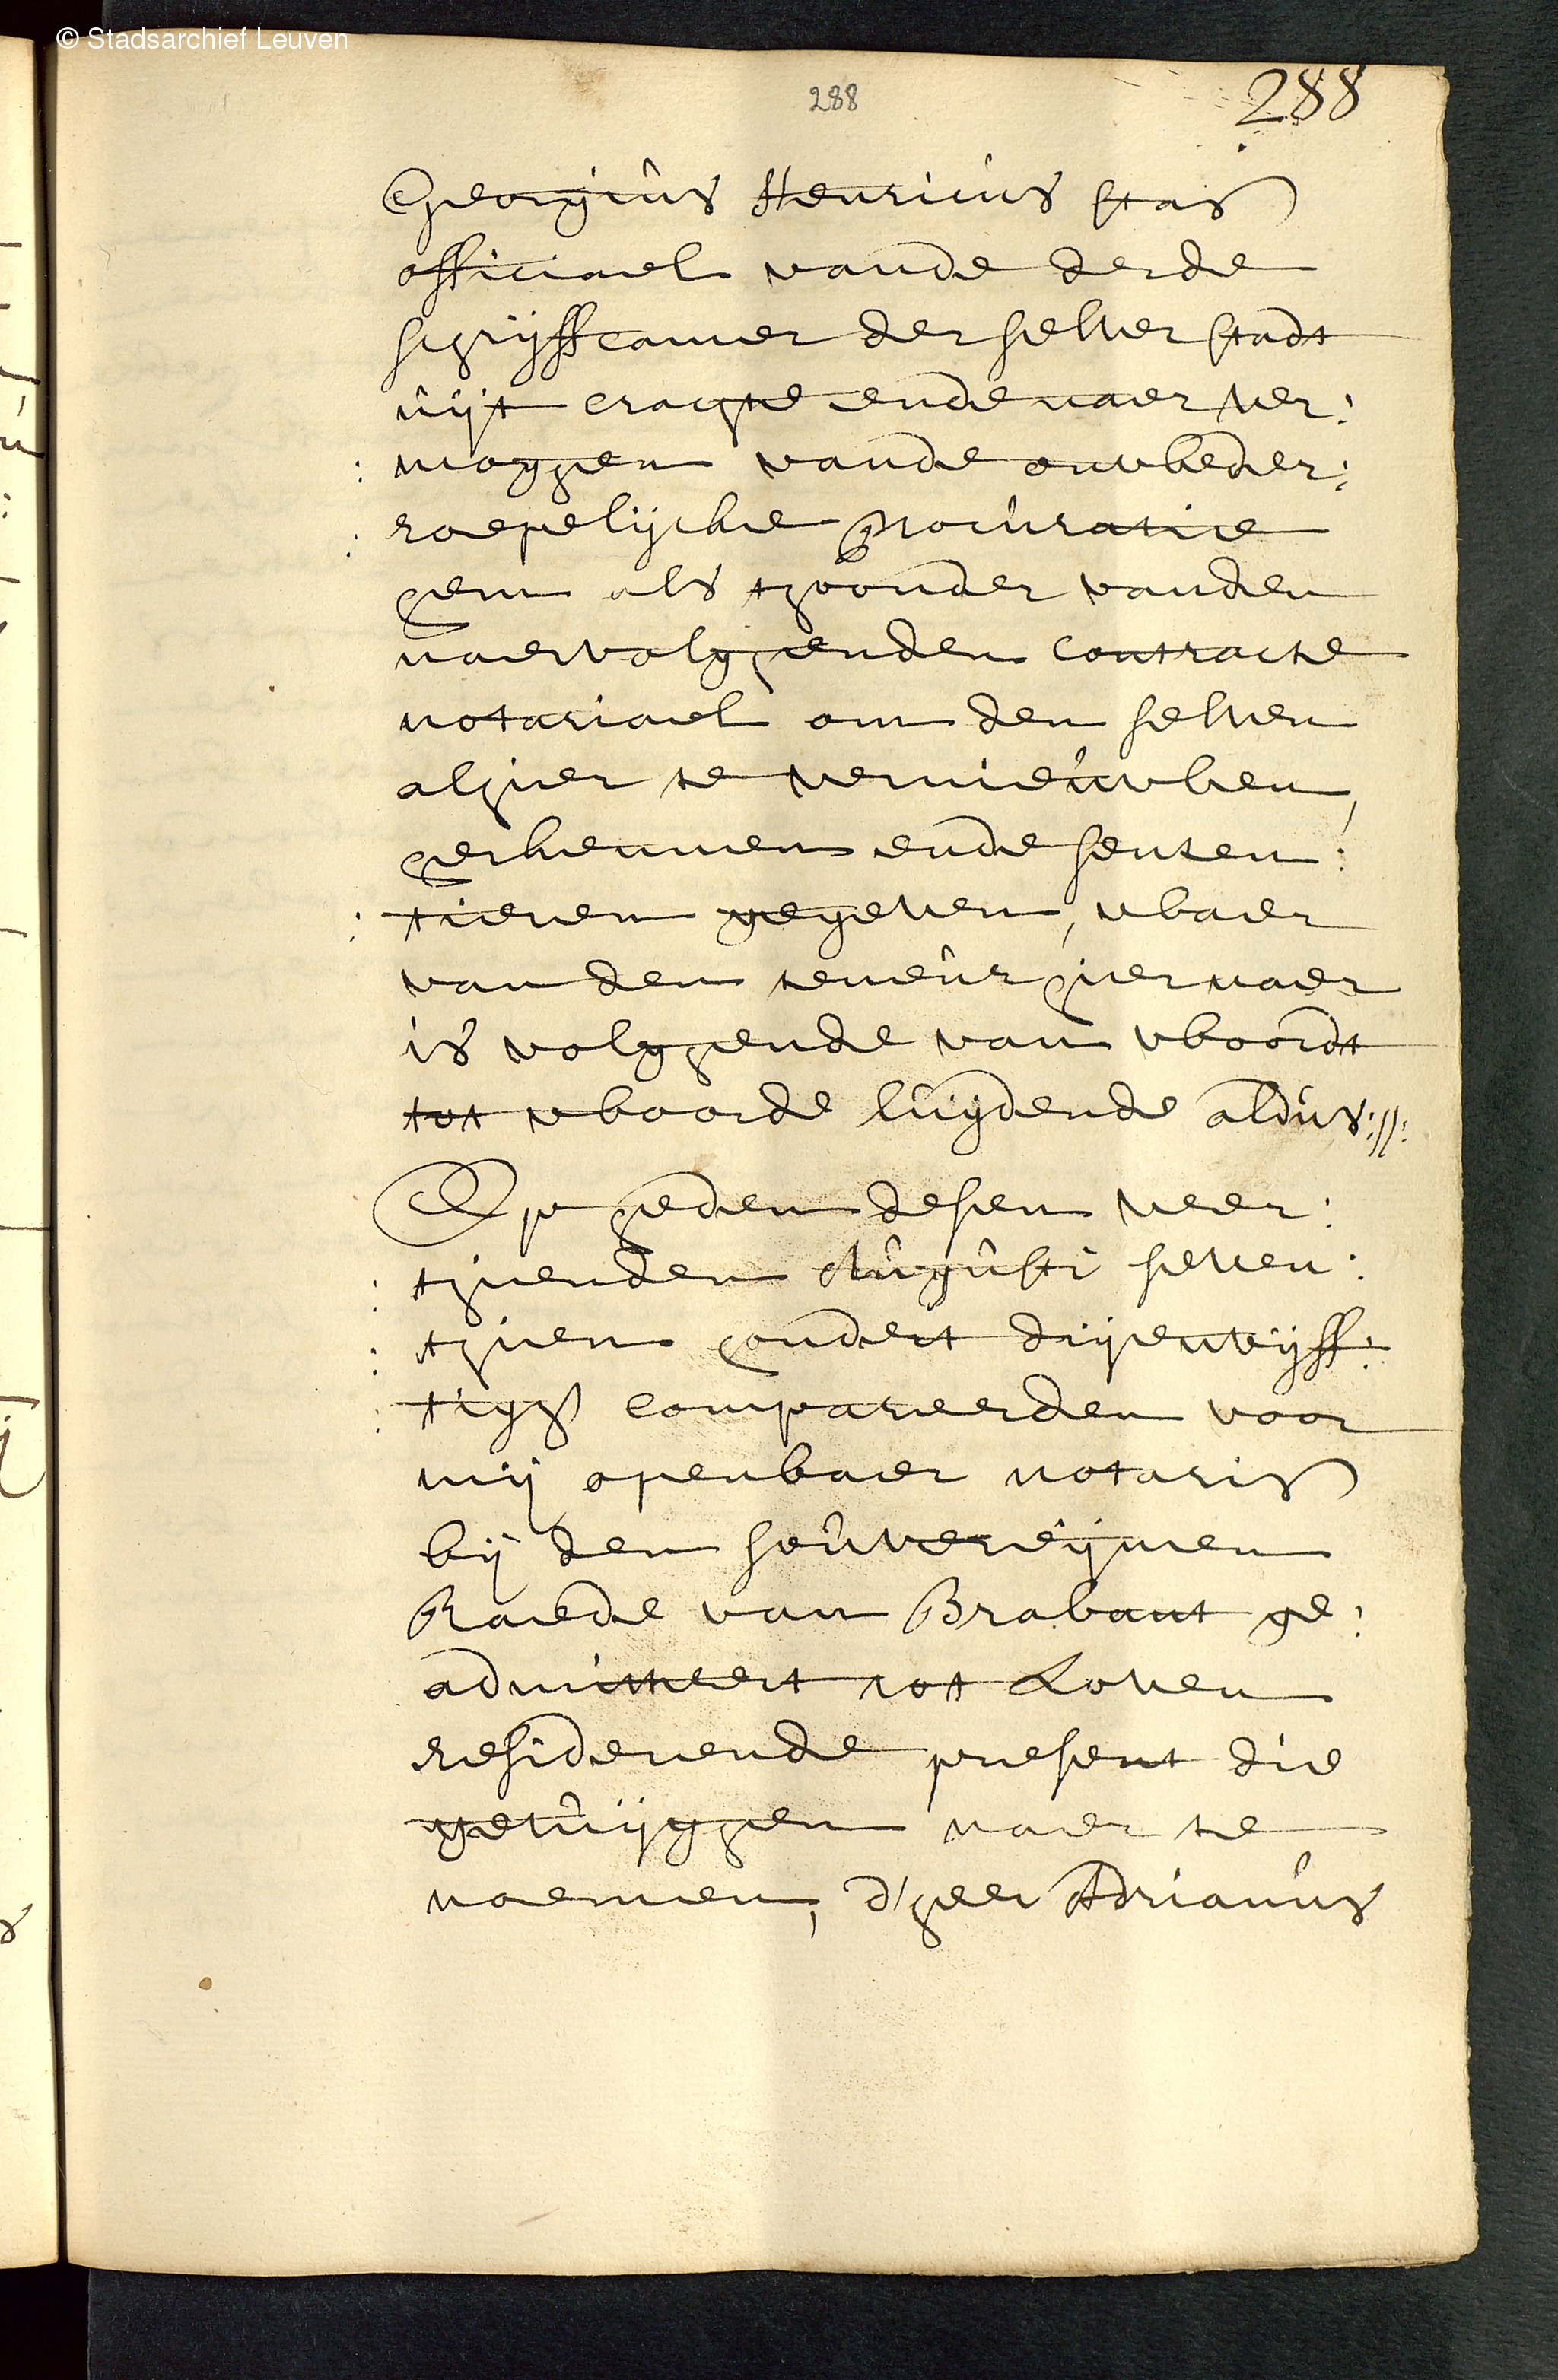 © Stadsarchief Leuven
288
288
Georgius Henricus Stas
officiael vande derde
schrijffcamer der selver stadt
uijt crachte ende naer ver:
: moghen vande onwbeder:
: roepelijcke procuratie
hem als thoonder vanden
naervolghenden contracte
notariael om den selven
alhier te vernieuwben,
herkennen ende senten:
: tieren gegeven, wbaer
van den teneur hier naer
is volghende van wboordt
tot wboorde luijdende aldus ://:
Op heden desen veer:
: thienden Augusti seven:
: thien hondert drijenvijff:
: tigh compareerden voor
mij openbaer notaris
bij den souvereijnen
Raede van Brabant ge:
admitteert tot Loven
residerende present die
getuijghen naer te
noemen, d'heer Adrianus